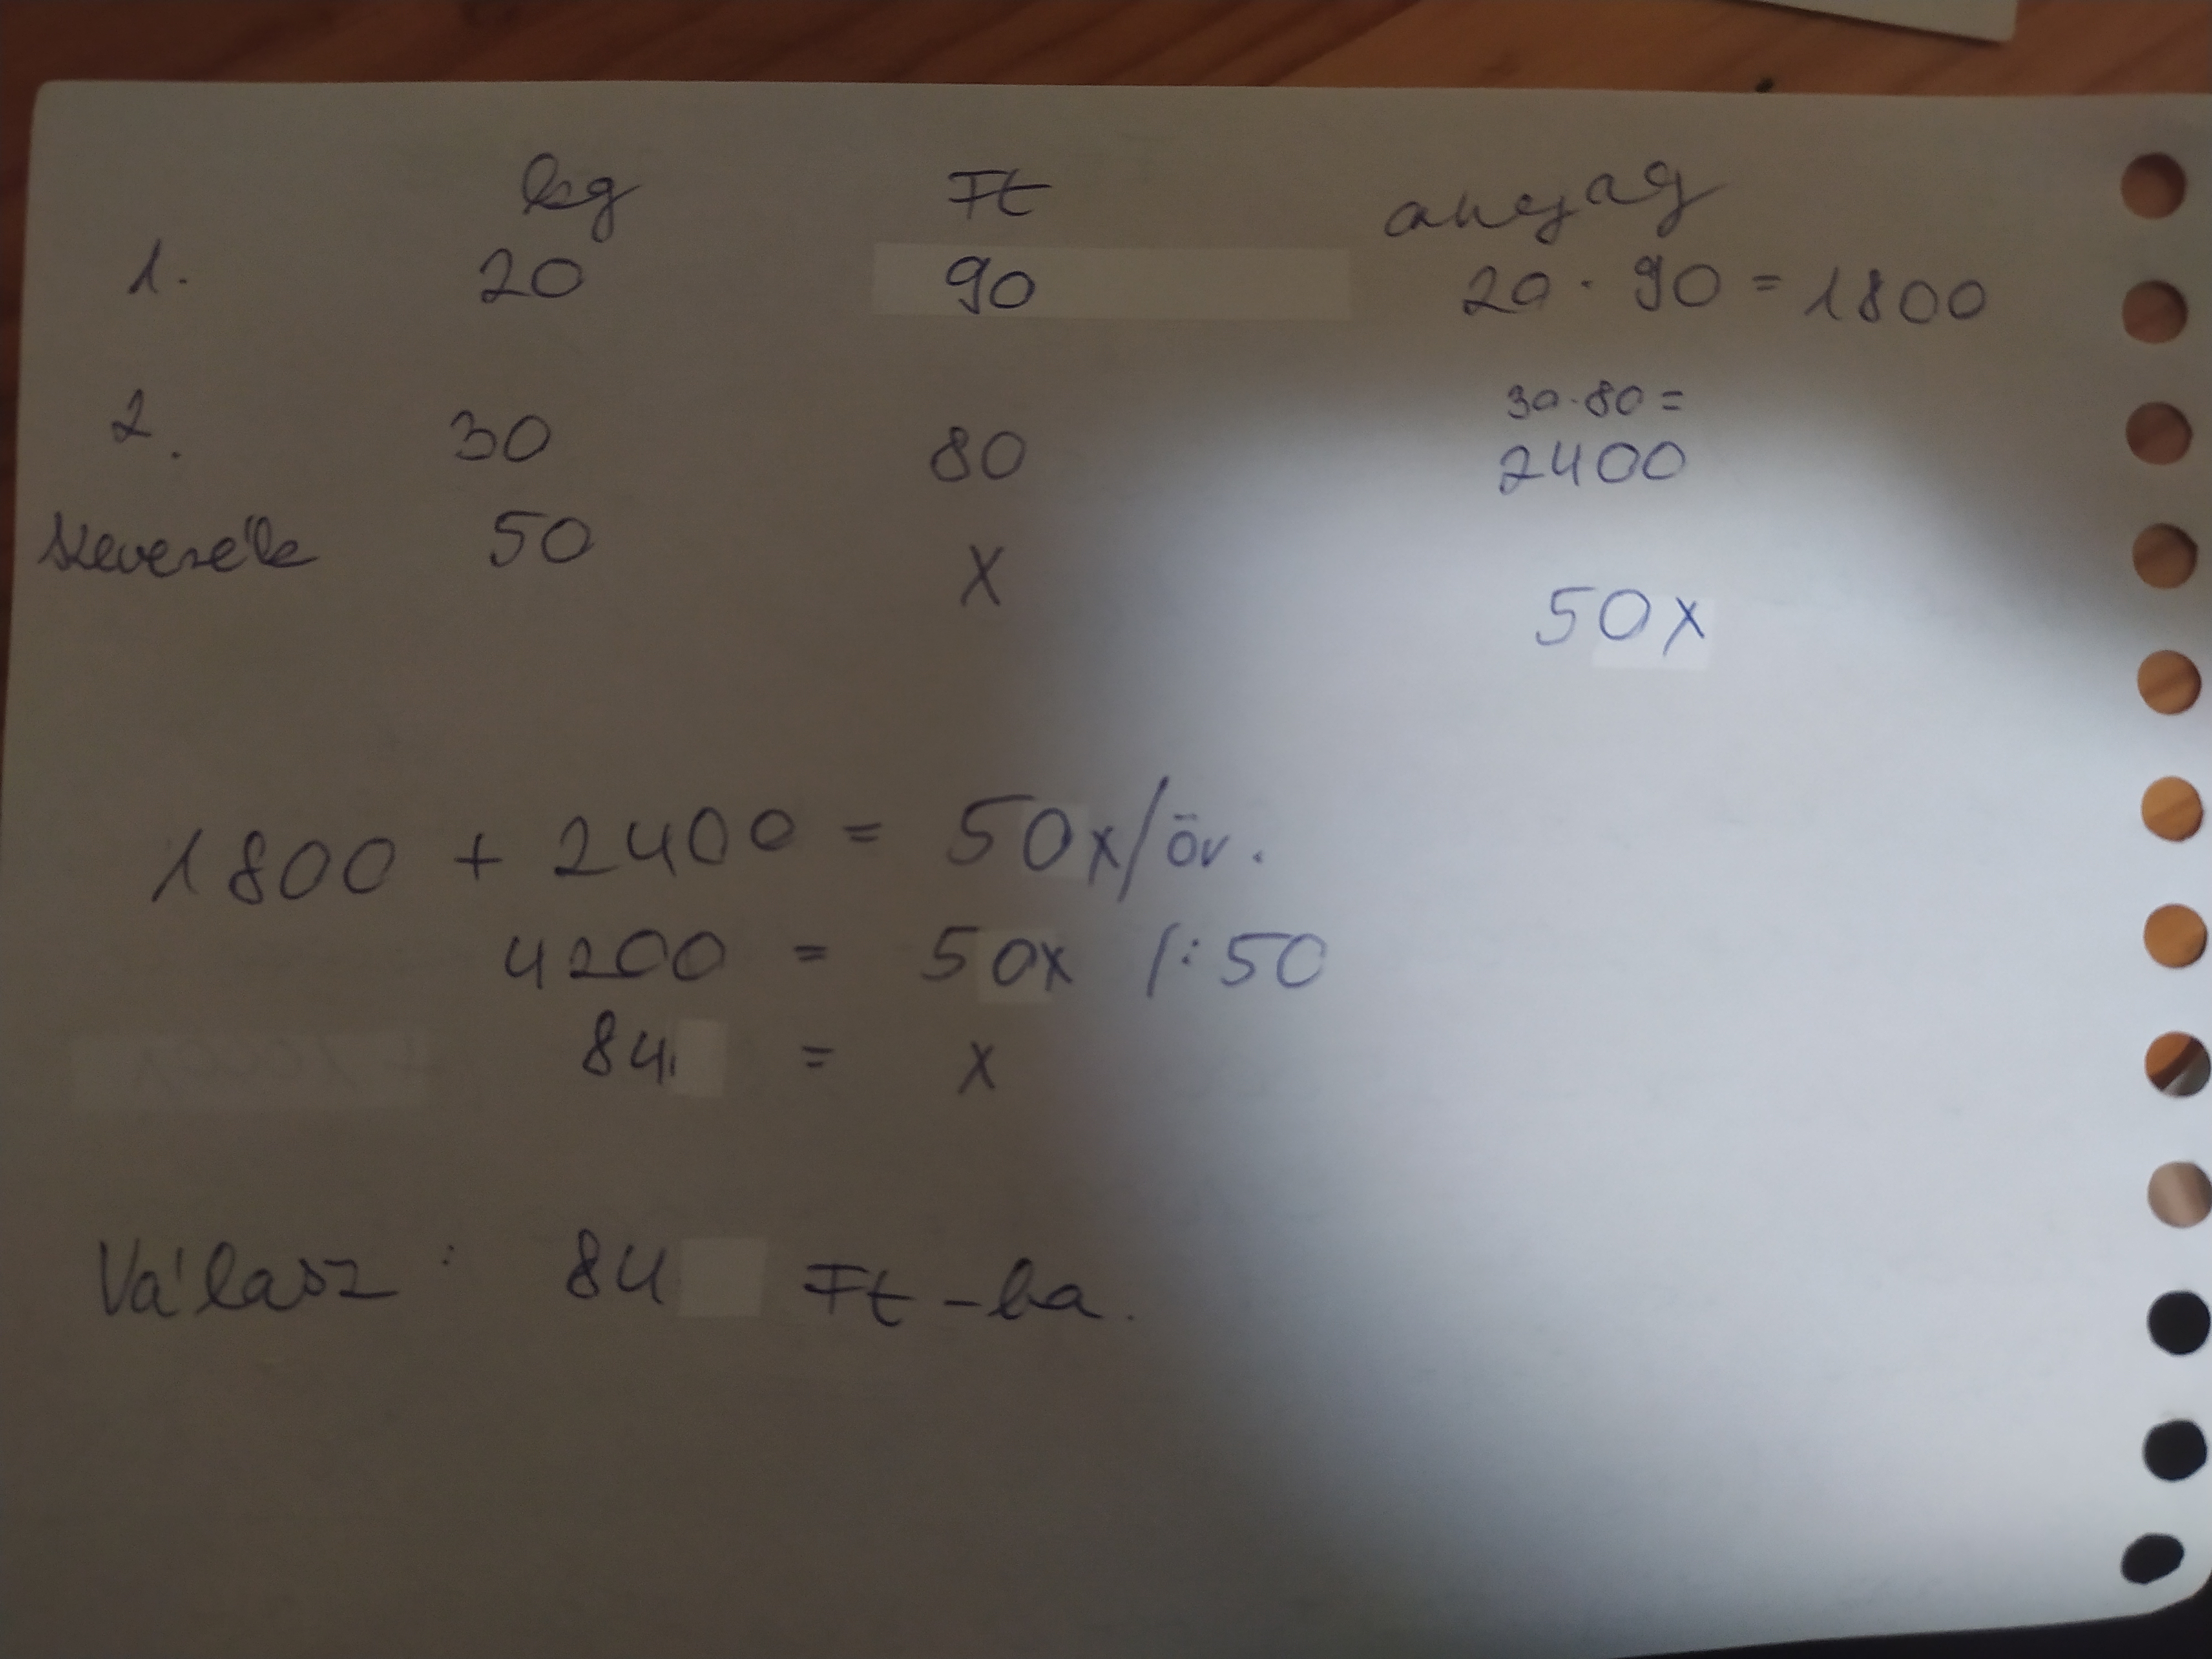 kg Ft anyag
1. 20 90 20 · 90 = 1800
2. 30 80 30·80 =
2400
keverék 50 X
50x
1800 + 2400 = 50x/öv.
4200 = 50x /:50
84 = x
Válasz: 84 Ft-ba.